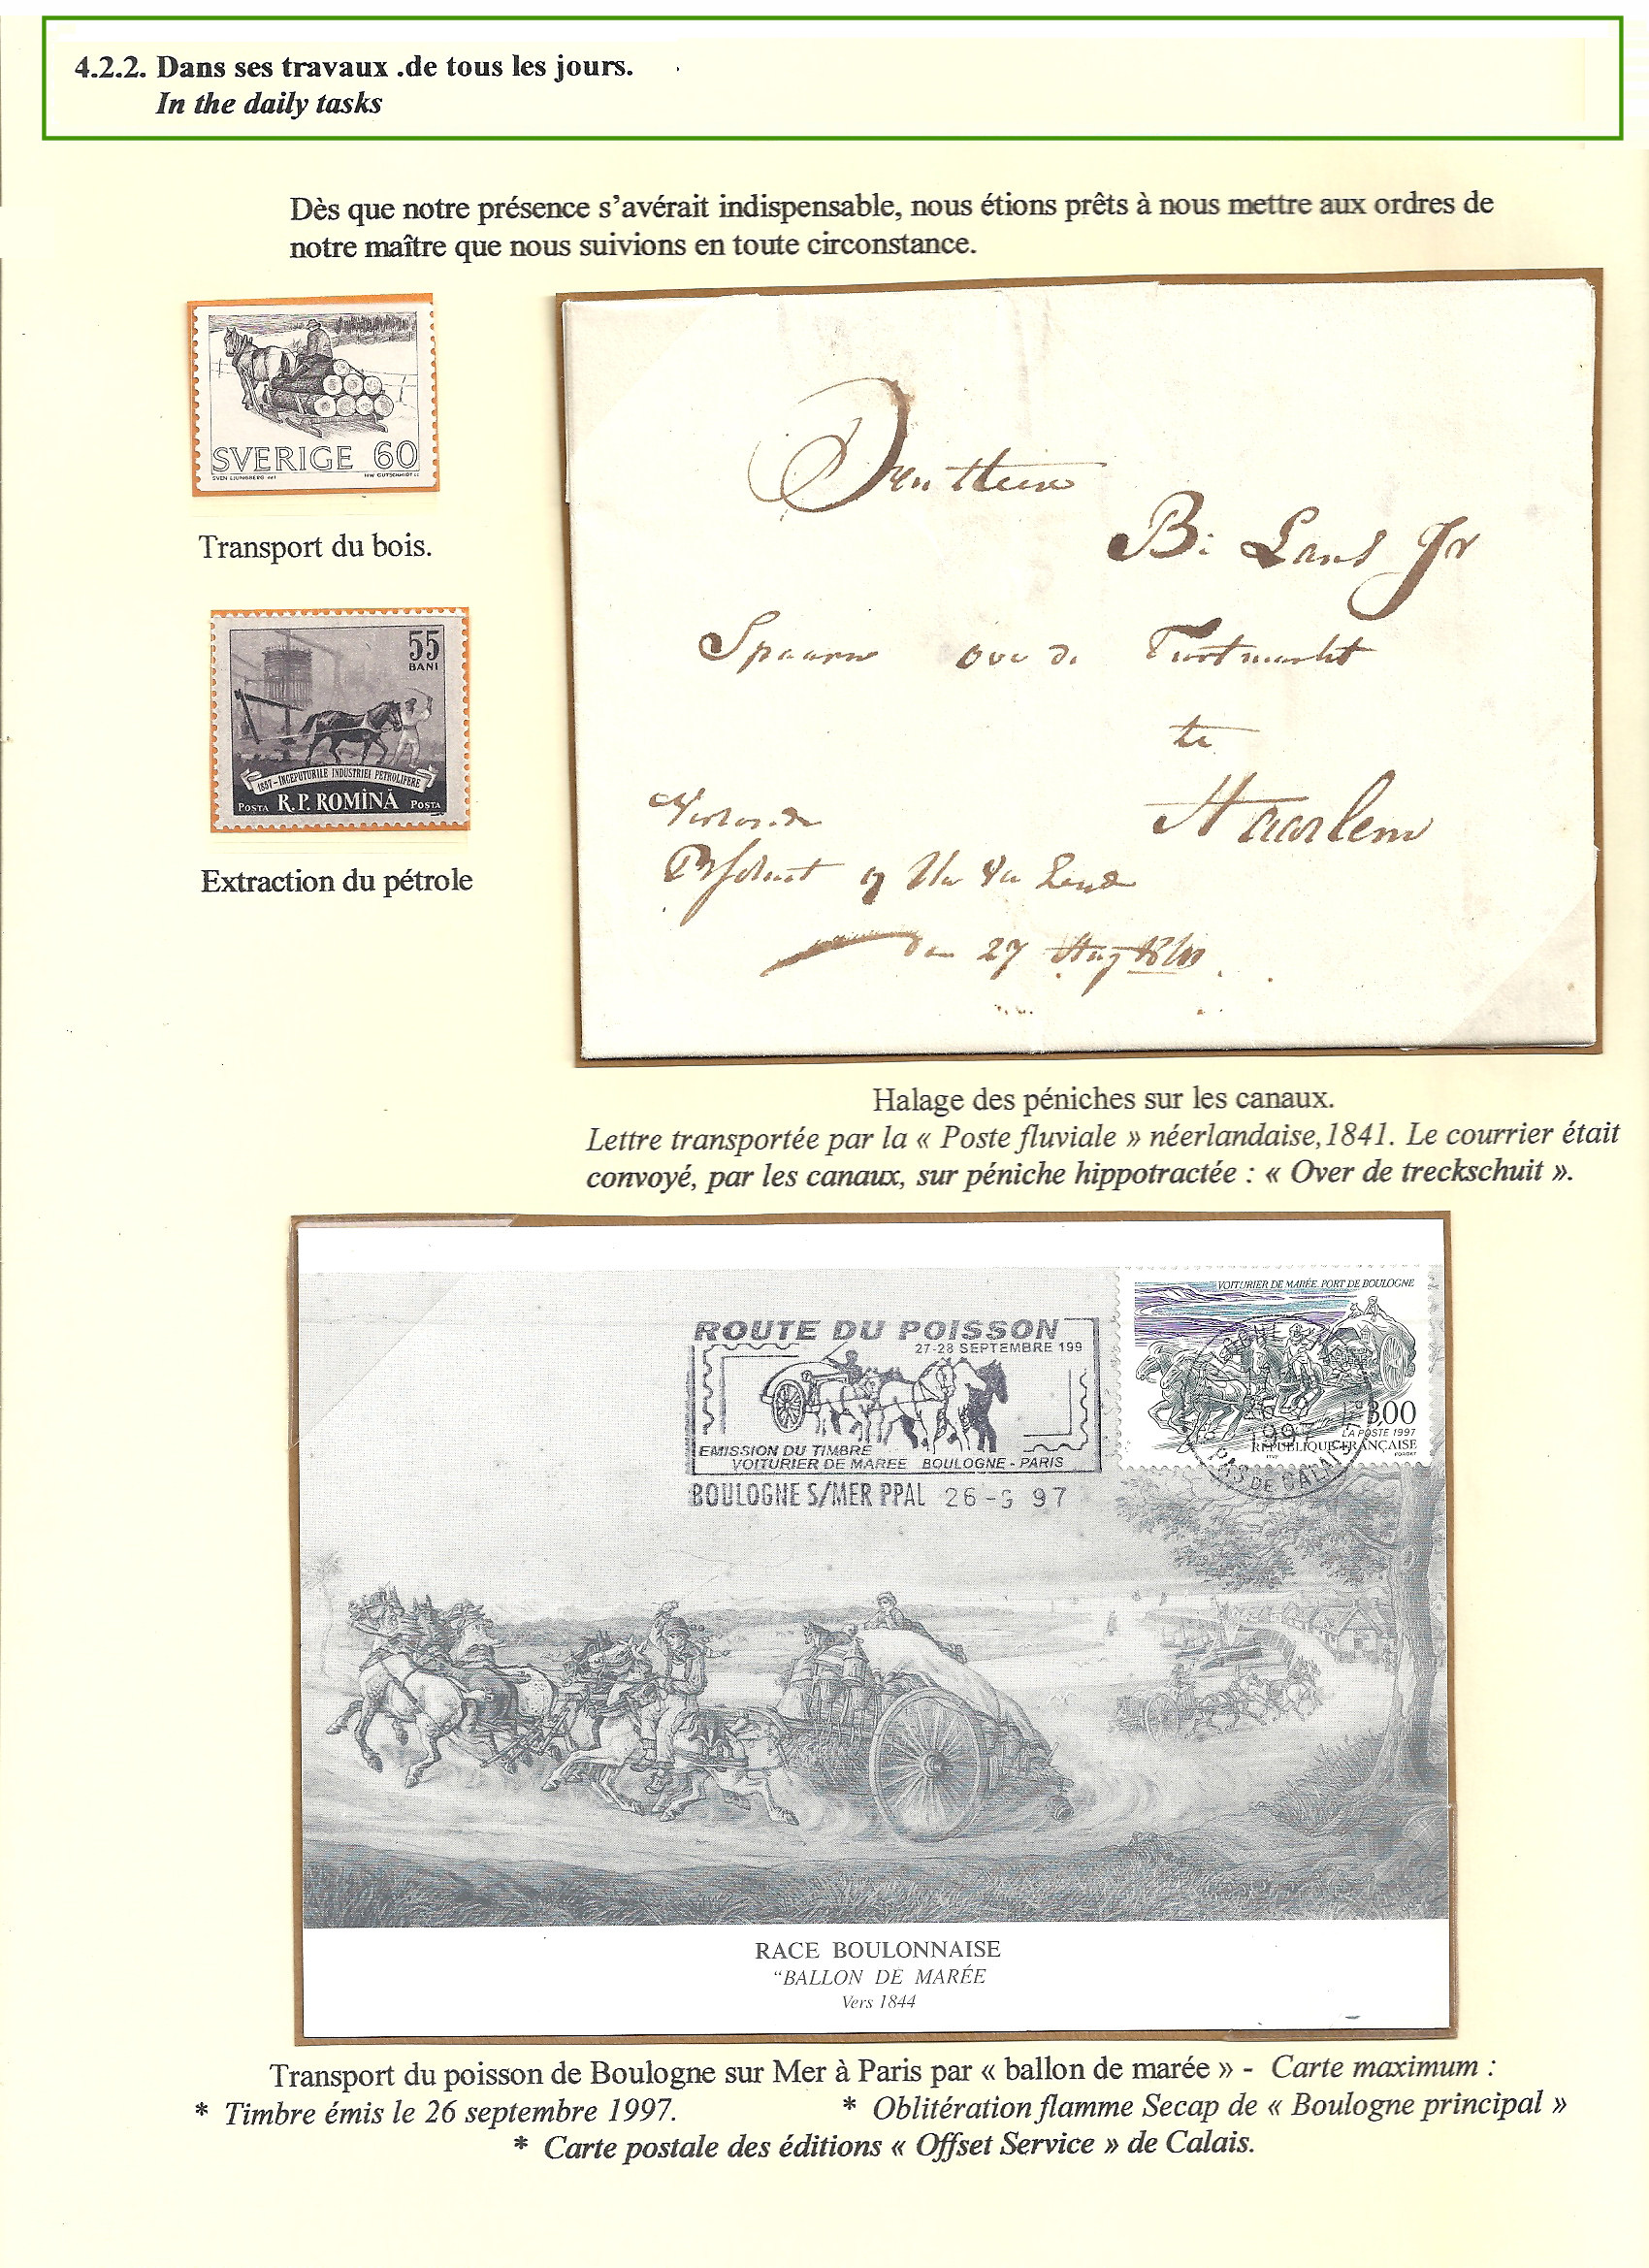 4.2.2. Dans ses travaux .de tous les jours.
In the daily tasks
Dès que notre présence s'avérait indispensable, nous étions prêts à nous mettre aux ordres de
notre maître que nous suivions en toute circonstance.
SVERIGE 60
SVEN LJUNGBERG
Transport du bois.
55
BANI
1857-INCEPUTURILE INDUSTRIEI PETROLIFERE
POSTA R.P. ROMÎNĂ POSTA
Extraction du pétrole
B: Lans Jr
Spaarne
te
Haarlem
27 Aug
Halage des péniches sur les canaux.
Lettre transportée par la « Poste fluviale » néerlandaise,1841. Le courrier était
convoyé, par les canaux, sur péniche hippotractée : « Over de treckschuit ».
VOITURIER DE MARÉE. PORT DE BOULOGNE
3,00
LA POSTE 1997
RÉPUBLIQUE FRANÇAISE
PAS DE CALAIS
ROUTE DU POISSON
27-28 SEPTEMBRE 199
EMISSION DU TIMBRE
VOITURIER DE MAREE BOULOGNE - PARIS
BOULOGNE S/MER PPAL 26-9 97
RACE BOULONNAISE
"BALLON DE MARÉE
Vers 1844
Transport du poisson de Boulogne sur Mer à Paris par « ballon de marée » - Carte maximum :
* Timbre émis le 26 septembre 1997. * Oblitération flamme Secap de « Boulogne principal »
* Carte postale des éditions « Offset Service » de Calais.